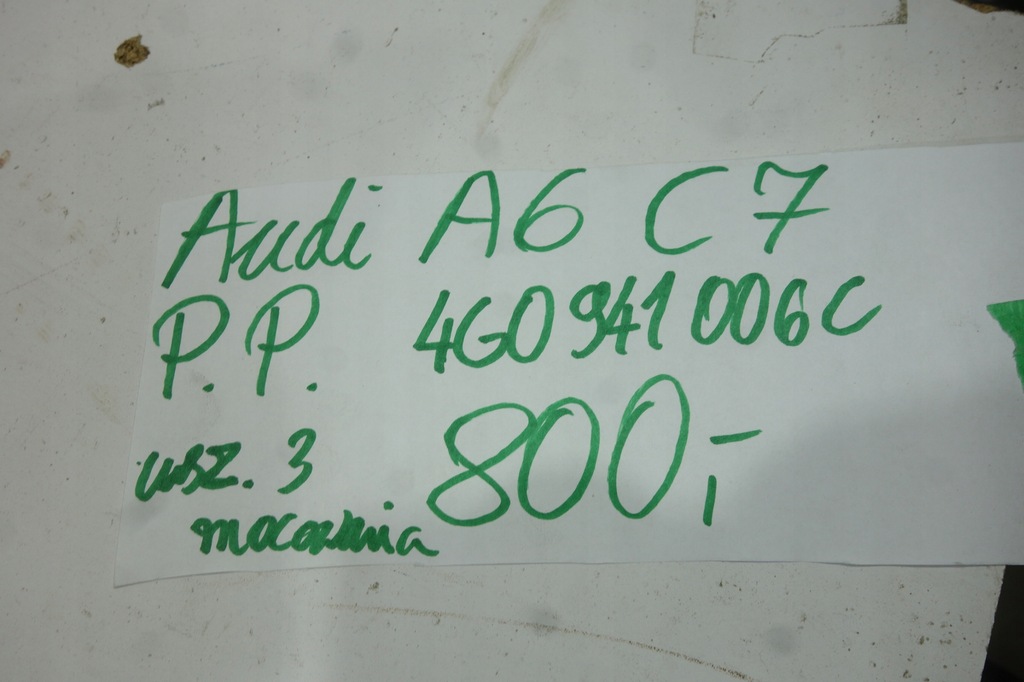 Audi A6 C7
P.P. 4G0941006C
usz. 3 800,-
mocowania